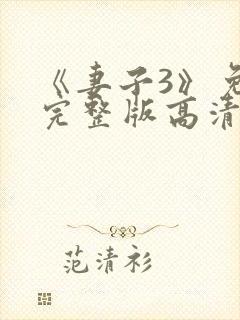 《妻子3》免
完整版高清
范清衫